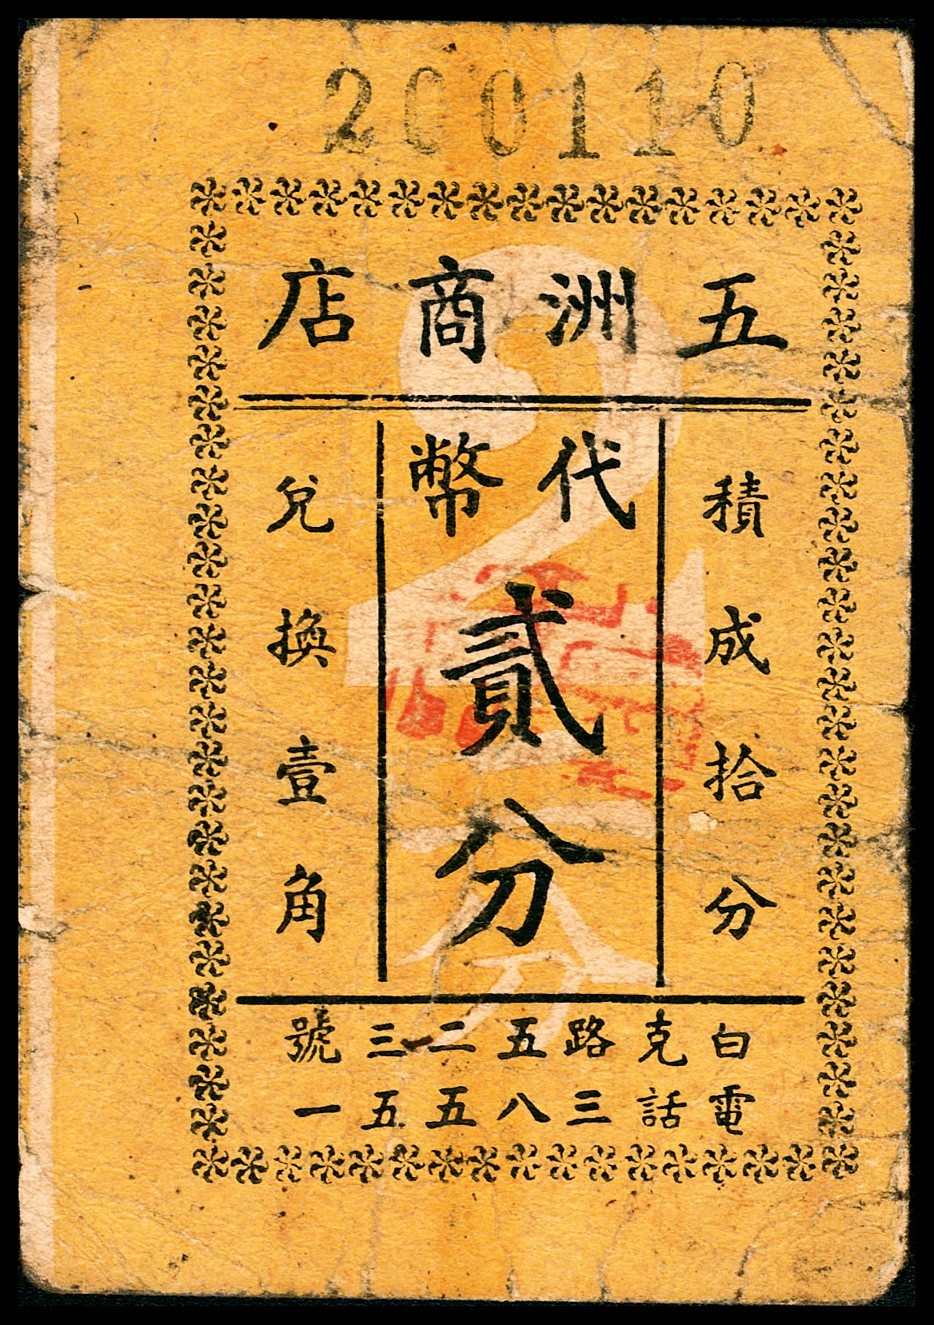 200110
五洲商店
代幣
貳分
積成拾分
兌換壹角
白克路五二三號
電話三八五五一
2
分